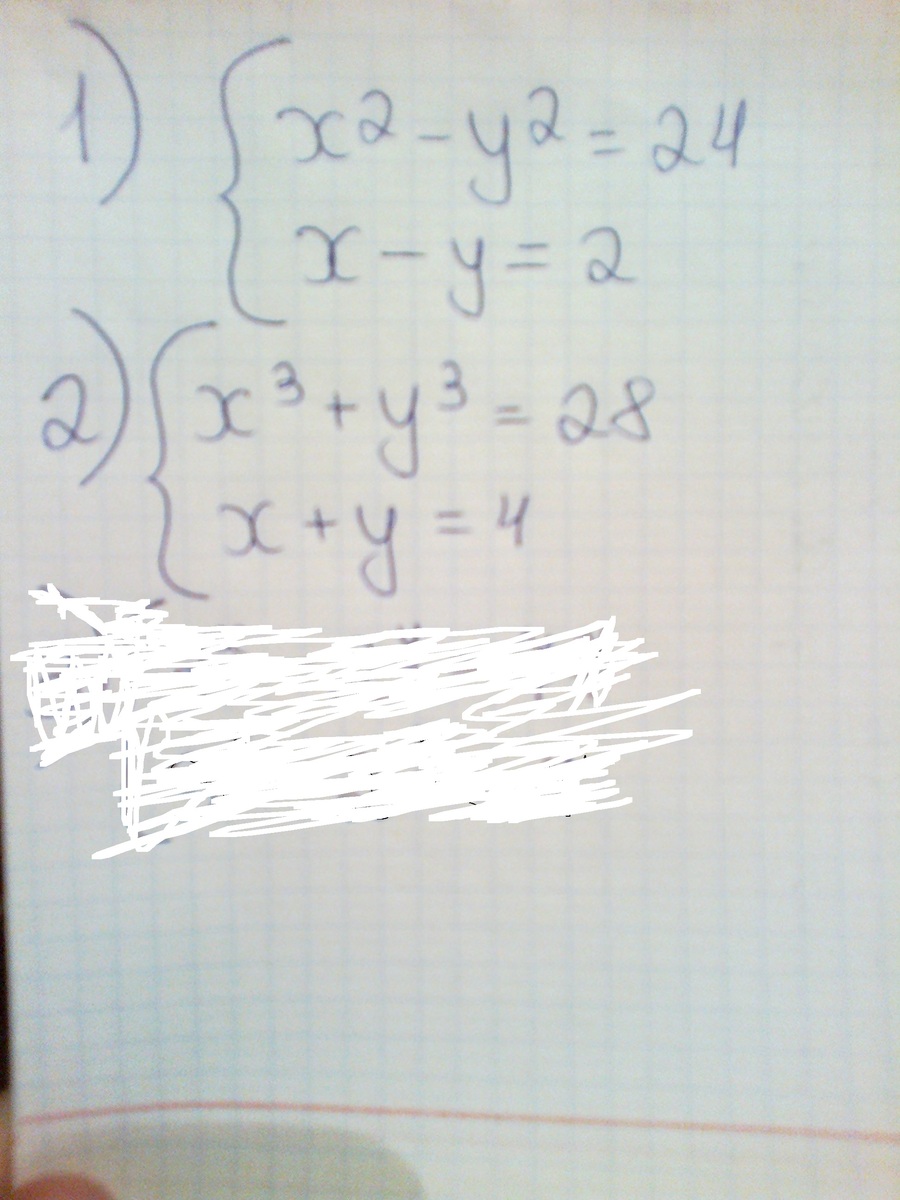 1) x² - y² = 24
x - y = 2
2) x³ + y³ = 28
x + y = 4